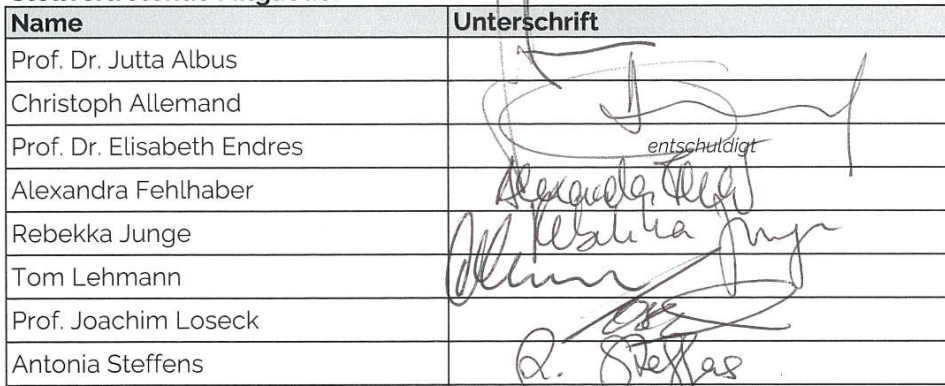 Name Unterschrift
Prof. Dr. Jutta Albus
Christoph Allemand
Prof. Dr. Elisabeth Endres entschuldigt
Alexandra Fehlhaber Alexandra
Rebekka Junge Rebekka Junge
Tom Lehmann
Prof. Joachim Loseck
Antonia Steffens A. Steffens